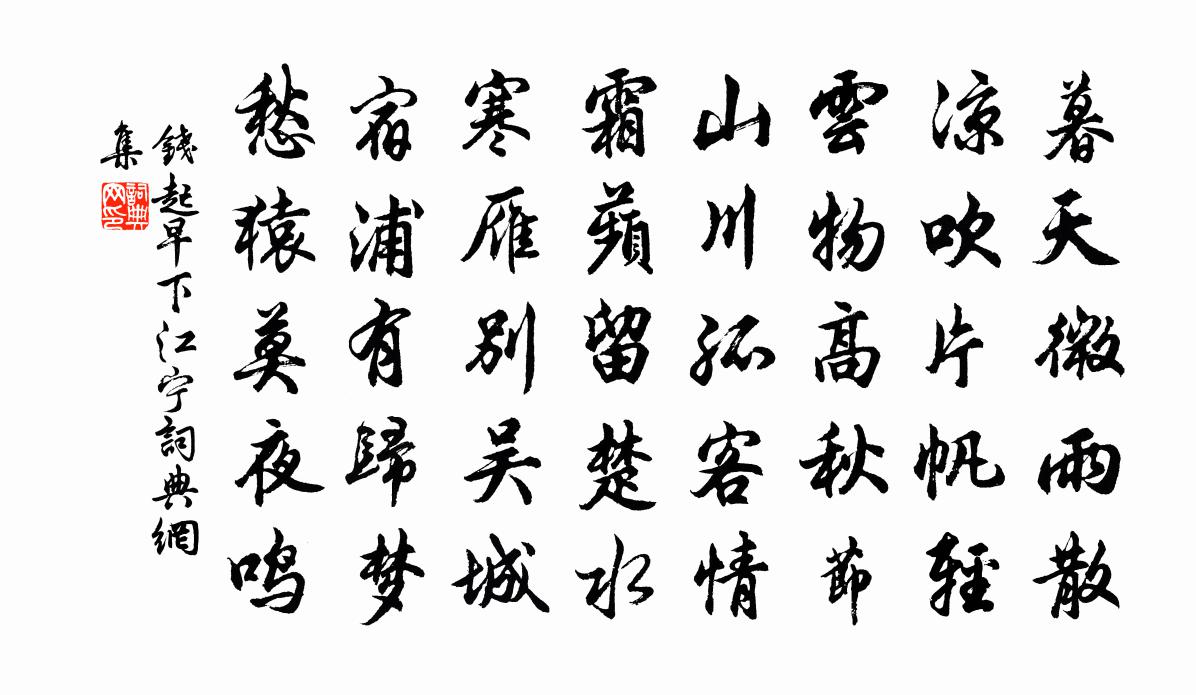 暮天微雨散
涼吹片帆輕
雲物高秋節
山川孤客情
霜蘋留楚水
寒雁別吴城
宿浦有歸梦
愁猿莫夜鸣
錢起早下江宁詞典網
集
詞典网印